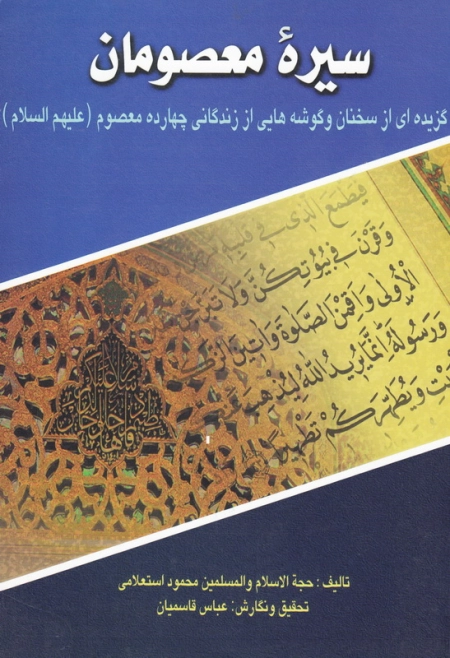 سیرهٔ معصومان
گزیده ای از سخنان و گوشه هایی از زندگانی چهارده معصوم (علیهم السلام)
فيطمع الذى فى قلبه
وقرن فى بيوتكن ولا تبرجن
الاولى واقمن الصلوة واتين الزكـ
ورسوله انما يريد الله ليذهب
ويطهركم تطهيرا
تالیف: حجة الاسلام والمسلمین محمود استعلامی
تحقیق و نگارش: عباس قاسمیان